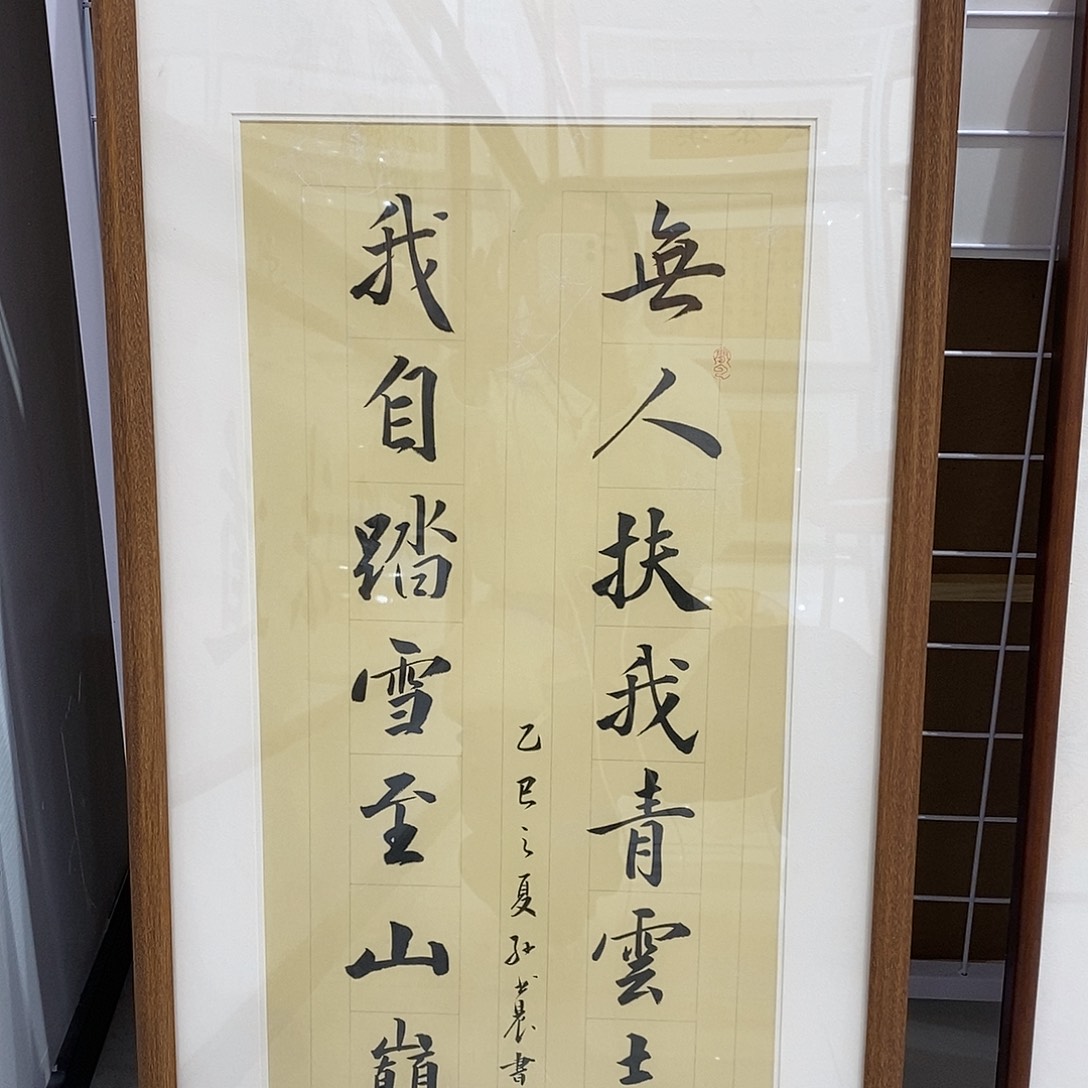 無人扶我青雲志
我自踏雪至山巔
乙巳之夏孙晨書